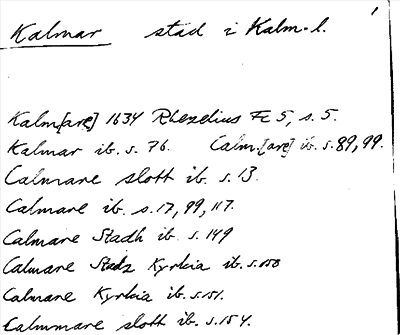 1
Kalmar stad i Kalm. l.
Kalm[are] 1634 Rhezelius Fc 5, s. 5.
Kalmar ib. s. 76. Calm.[are] ib. s. 89, 99.
Calmare slott ib. s. 13.
Calmare ib. s. 17, 99, 117.
Calmare Stadh ib. s. 149
Calmare Stadz Kyrkia ib. s. 150
Calmare Kyrkia ib. s. 151.
Calmmare slott ib. s. 154.